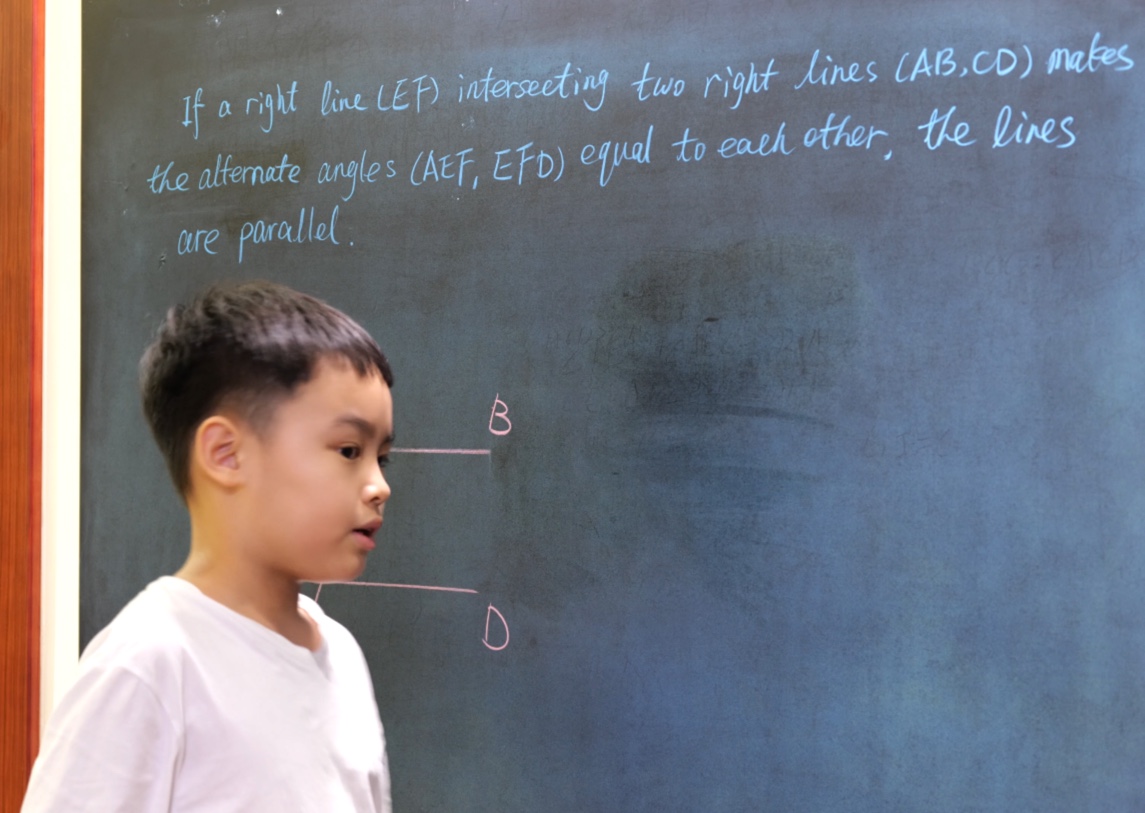 If a right line (EF) intersecting two right lines (AB,CD) makes
the alternate angles (AEF, EFD) equal to each other, the lines
are parallel.
B
D